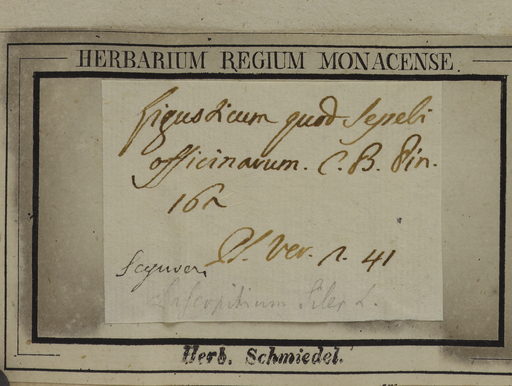 HERBARIUM REGIUM MONACENSE.
Ligusticum quod Seseli
officinarum. C. B. Pin.
162
Pl. Ver. 2. 41
Seguier.
Laserpitium Siler L.
Herb. Schmiedel.